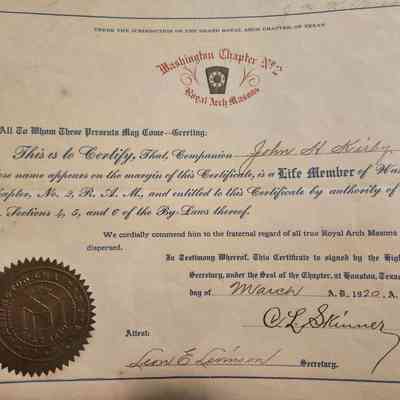 UNDER THE JURISDICTION OF THE GRAND ROYAL ARCH CHAPTER, OF TEXAS
Washington Chapter No 2
Royal Arch Masons
All To Whom These Presents May Come—Greeting:
This is to Certify, That, Companion John H Kirby
ose name appears on the margin of this Certificate, is a Life Member of Wa
hapter, No. 2, R. A. M., and entitled to this Certificate by authority of
Sections 4, 5, and 6 of the By-Laws thereof.
We cordially commend him to the fraternal regard of all true Royal Arch Masons
dispersed.
In Testimony Whereof, This Certificate is signed by the High
Secretary, under the Seal of the Chapter, at Houston, Texa
day of March A. D. 1920. A.
C. L. Skinner
Attest:
Leon E Levinson Secretary.